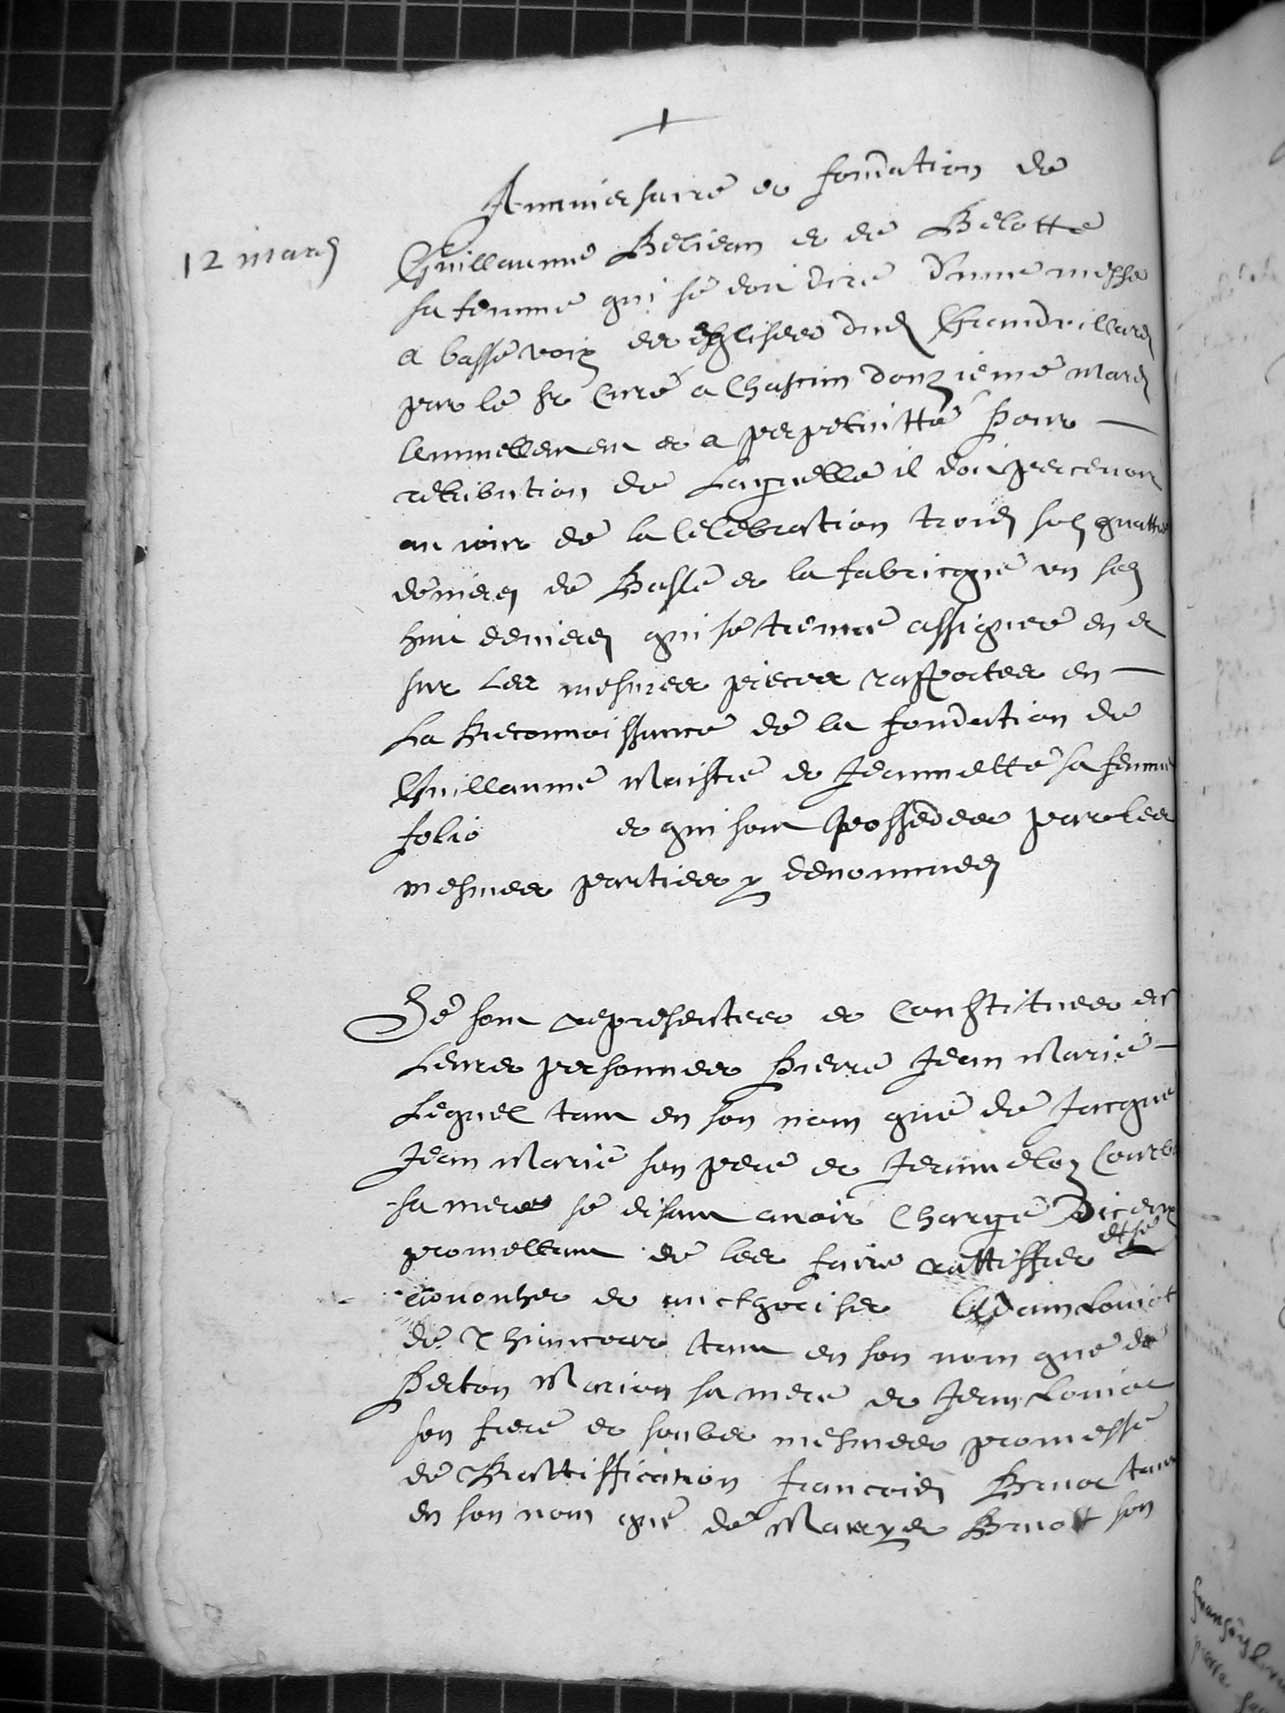 Anniversaire et fondation de
12 mars
Guillaume Beljean et de Belotte
sa femme qui se doit dire d'une messe
a basse voix es eglises dud Grandvillars
par le Sr Curé a Chascun douzieme mars
annuellement et a perpetuitté Pour
retribution de Laquelle il doit percevoir
au jour de la celebration trois solz quattre
deniers de Basle et la fabricque un solz
huit deniers qui se treuve assignee en et
sur Les mesmes pieces rapportees en
La Reconnoissance de la fondation de
Guillaume Maistre et Jeannette sa femme
folio et qui sont possedees par les
mesmes parties y denommees
Se sont representees et Constituees en
Leures personnes Pierre Jean Marie
Lequel tant en son nom que de Jacque
Jean Marie son pere et
sa mere se disant avoir Charge D'iceux
promettant de les faire rattiffier et se
et aucthoriser Louiot
de Thiancourt tant en son nom que de
Perton Marion sa mere et Jean Louiot
son frere et soubs mesmes promesse
de Rattiffication francois Bruot tant
en son nom que de Bruott son